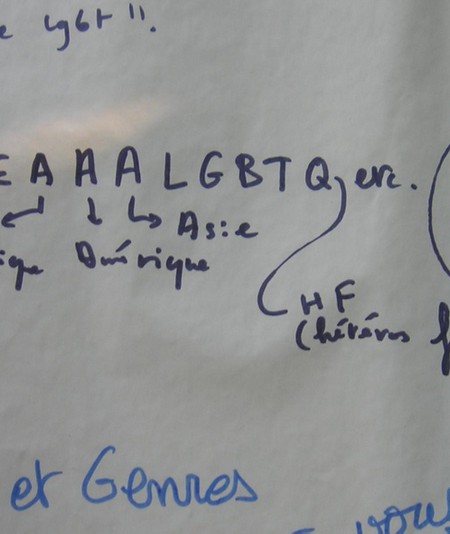 e lgbt !!.
E A A A L G B T Q, etc.
Asie
ique Amérique
H F
(hétéros f
et Genres
vous